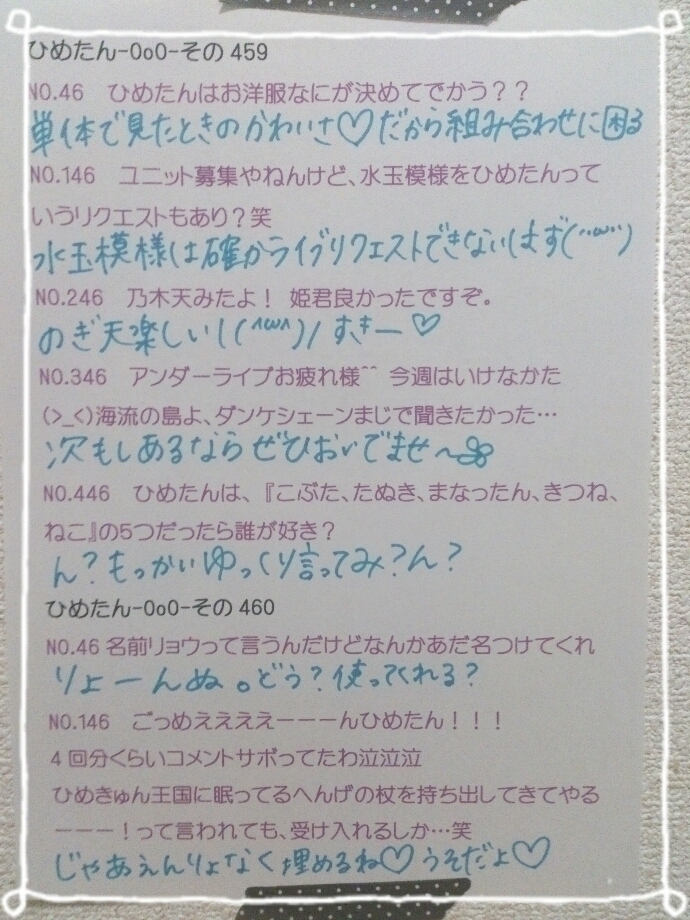 ひめたん-OoO-その459
NO.46 ひめたんはお洋服なにが決めてでかう？？
単体で見たときのかわいさ♡だから組み合わせに困る
NO.146 ユニット募集やねんけど、水玉模様をひめたんって
いうリクエストもあり？笑
水玉模様は確かライブリクエストできないはず(´･ω･`)
NO.246 乃木天みたよ！ 姫君良かったですぞ。
のぎ天楽しい!(^ω^)/ すきー♡
NO.346 アンダーライブお疲れ様^^ 今週はいけなかた
(>_<)海流の島よ、ダンケシェーンまじで聞きたかった…
次もしあるならぜひおいでませ～
NO.446 ひめたんは、『こぶた、たぬき、まなったん、きつね、
ねこ』の5つだったら誰が好き？
ん？もっかいゆっくり言ってみ？ん？
ひめたん-OoO-その460
NO.46 名前リョウって言うんだけどなんかあだ名つけてくれ
りょーんぬ。どう？使ってくれる？
NO.146 ごっめええええーーーんひめたん！！！
4回分くらいコメントサボってたわ泣泣泣
ひめきゅん王国に眠ってるへんげの杖を持ち出してきてやる
ーーー！って言われても、受け入れるしか…笑
じゃあえんりょなく埋めるね♡うそだよ♡